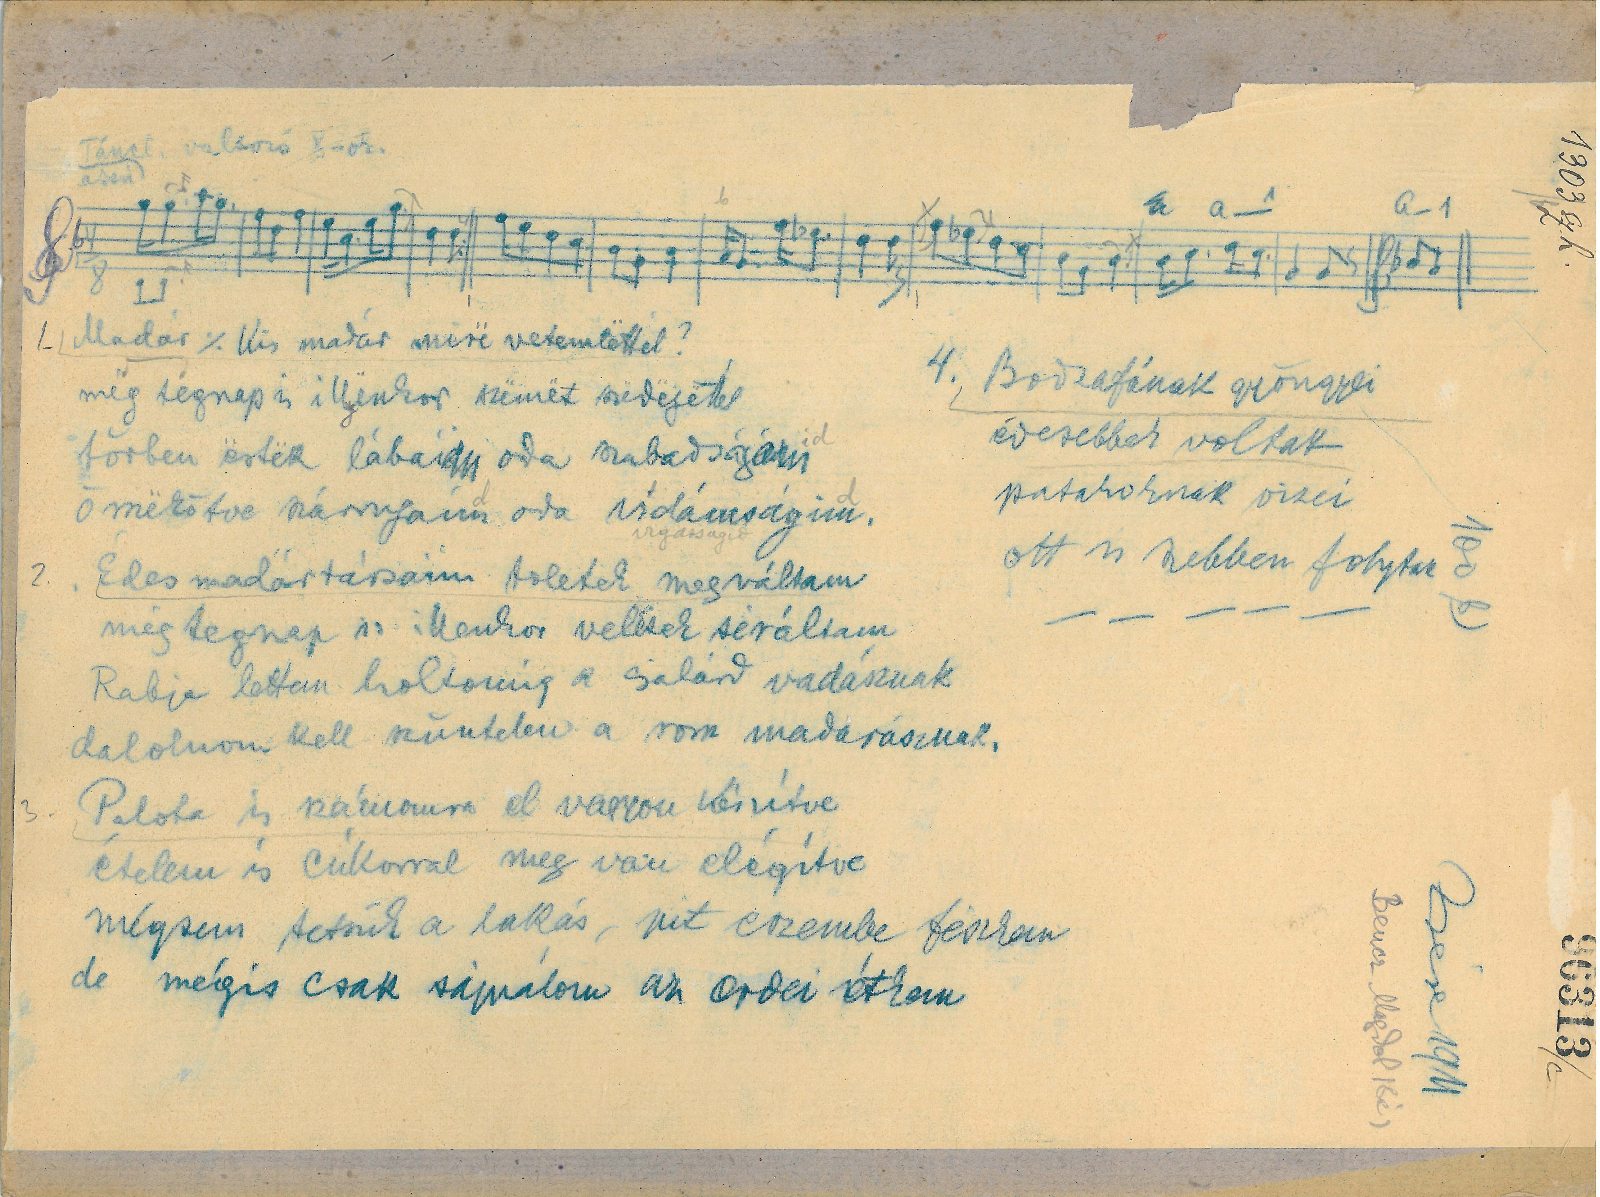 a a—1 a—1
8
1. Madár ٪ Kis madár mirë vetemlëttél?
még tegnap is illenkor szëmët szedëgettél
törben estek lábaid oda szabadságid
Öszvekötve szárnyaid oda vídámságid.
vigasságid
2. Édes madártársaim toletek megváltam
még tegnap is illenkor veletek sétáltam
Rabja lettem holtomig a vadásznak
dalolnom kell szüntelen a rossz madarásznak.
3. Palota is számomra el vagyon készítve
ételem is cúkorral meg van elégítve
mégsem tetszik a lakás, jut eszembe fészkem
de mégis csak sajnálom az erdei étkem
4. Bodzafának gyöngyei
édesebbek voltak
pataknak vizei
ott is szebben folytak
— — — — —
188 b)
1903 gh.
Zsére 1911
Bencz Magdol
36313/c